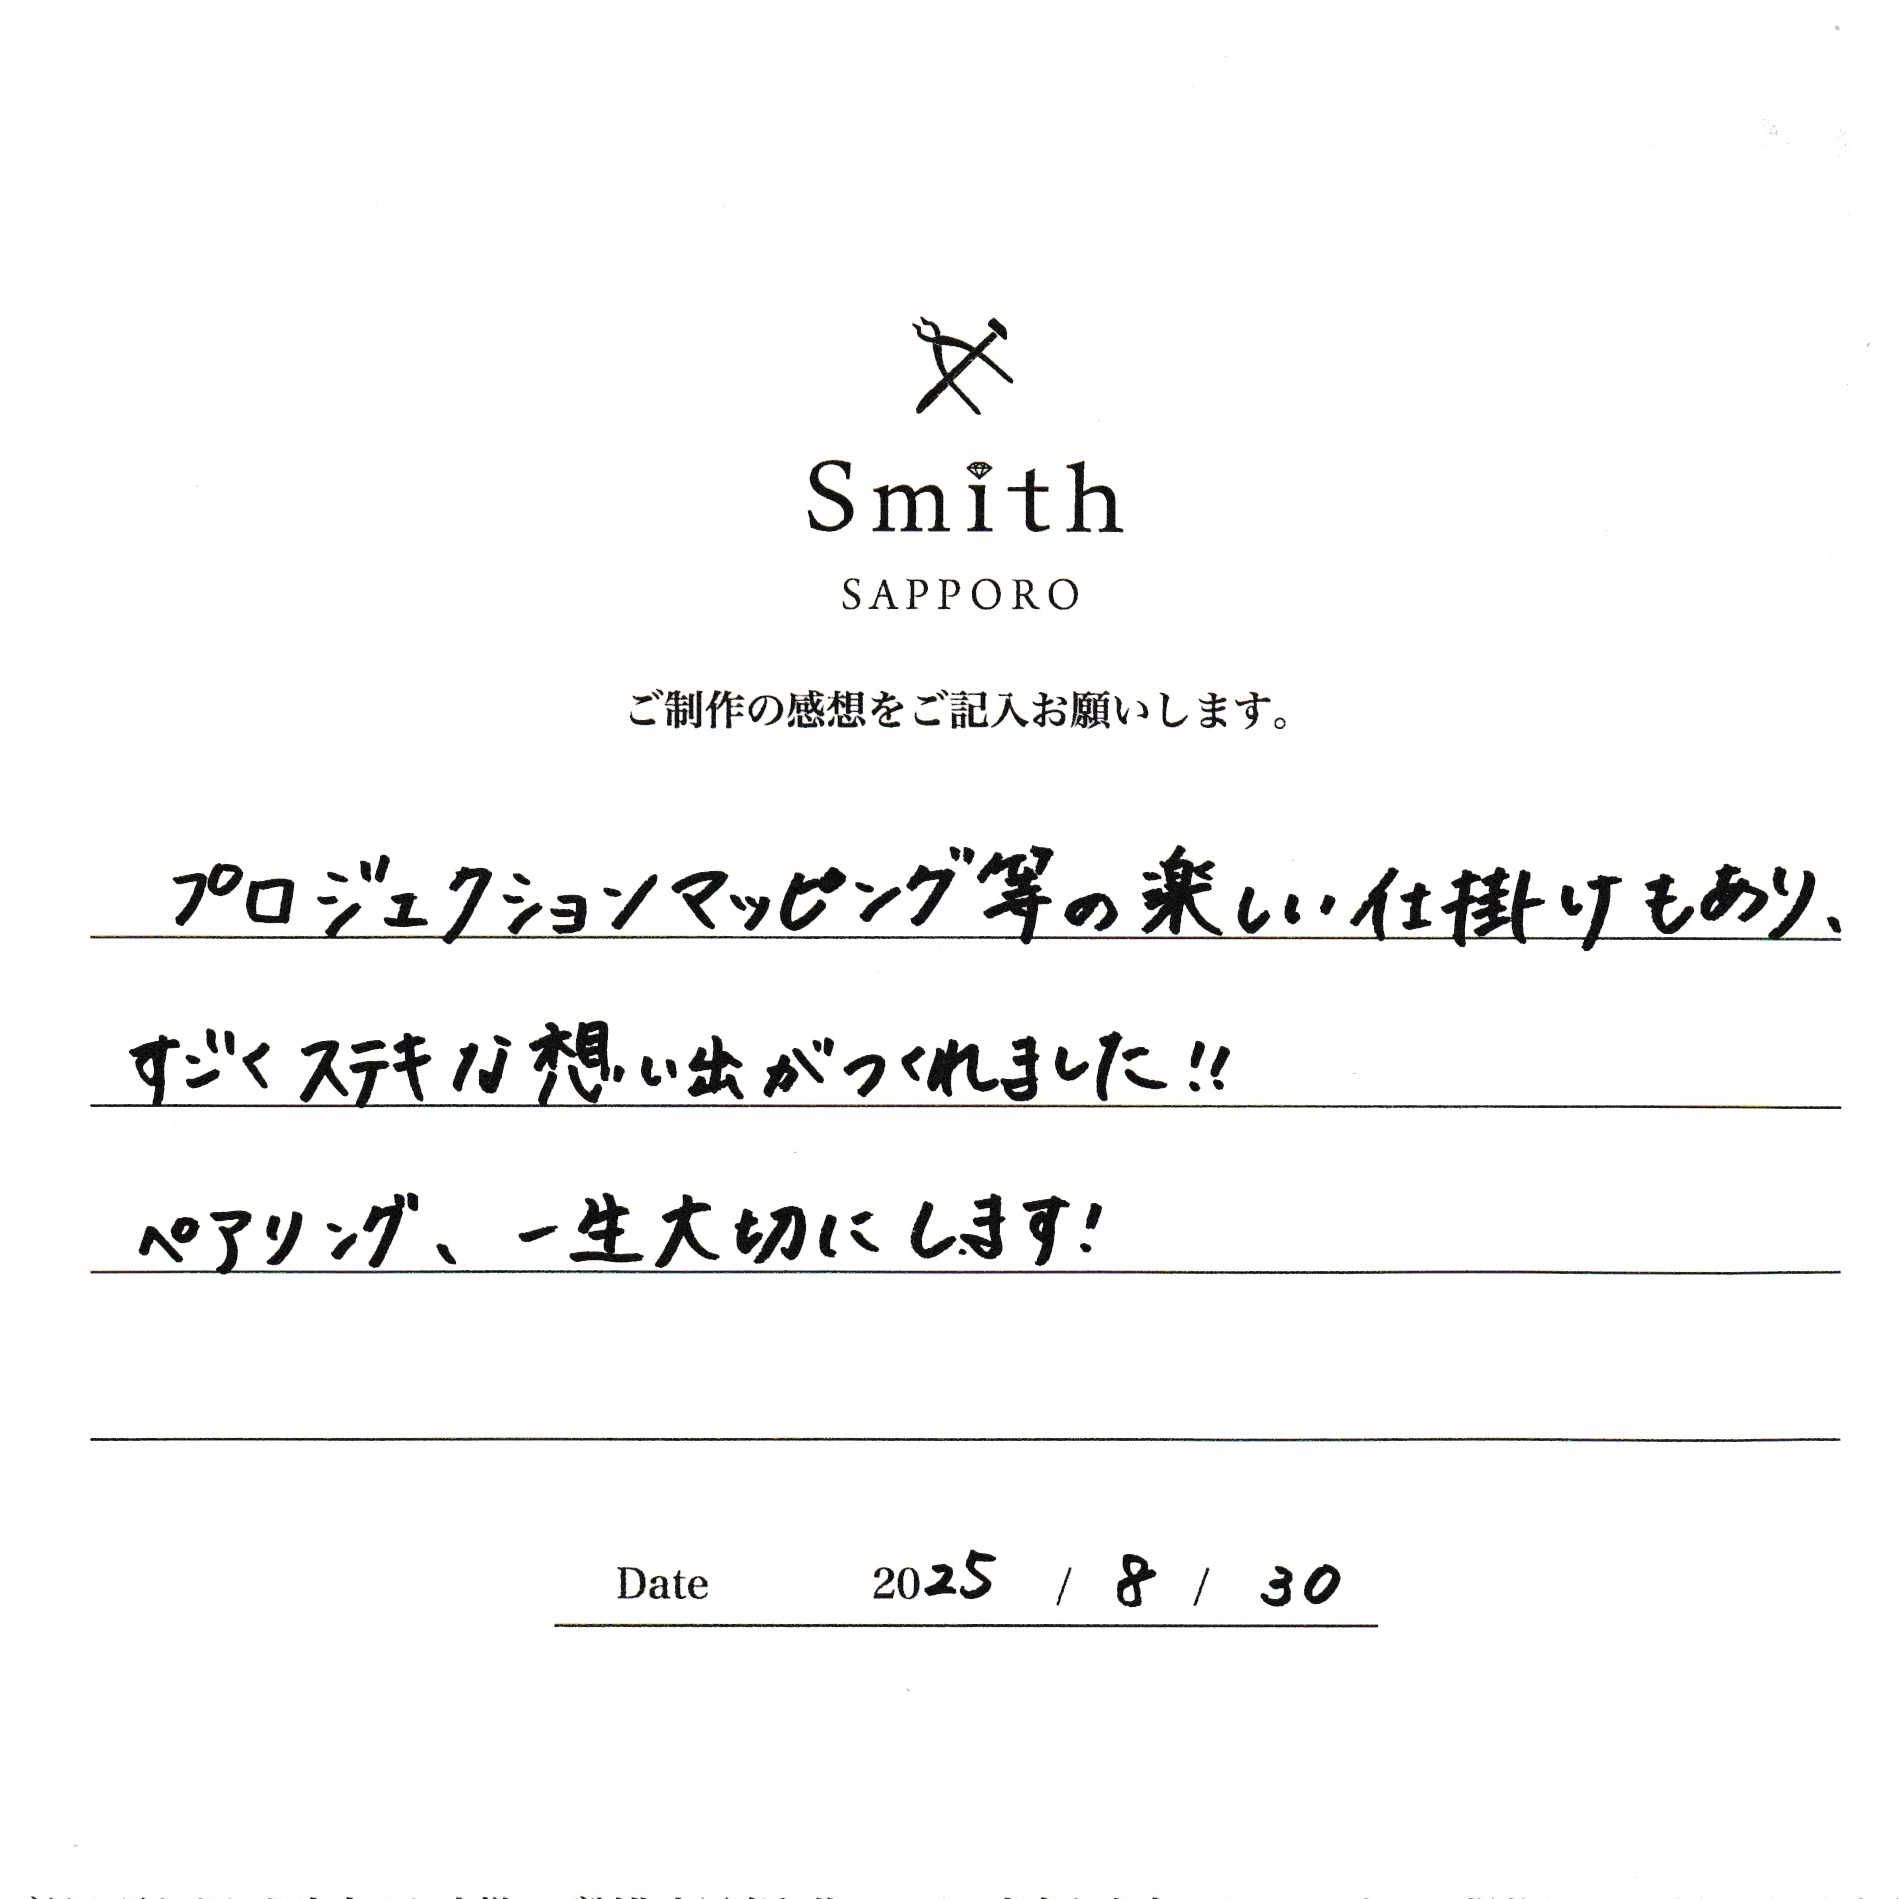 Smith
SAPPORO
ご制作の感想をご記入お願いします。
プロジェクションマッピング等の楽しい仕掛けもあり、
すごくステキな想い出がつくれました!!
ペアリング、一生大切にします!
Date 2025 / 8 / 30